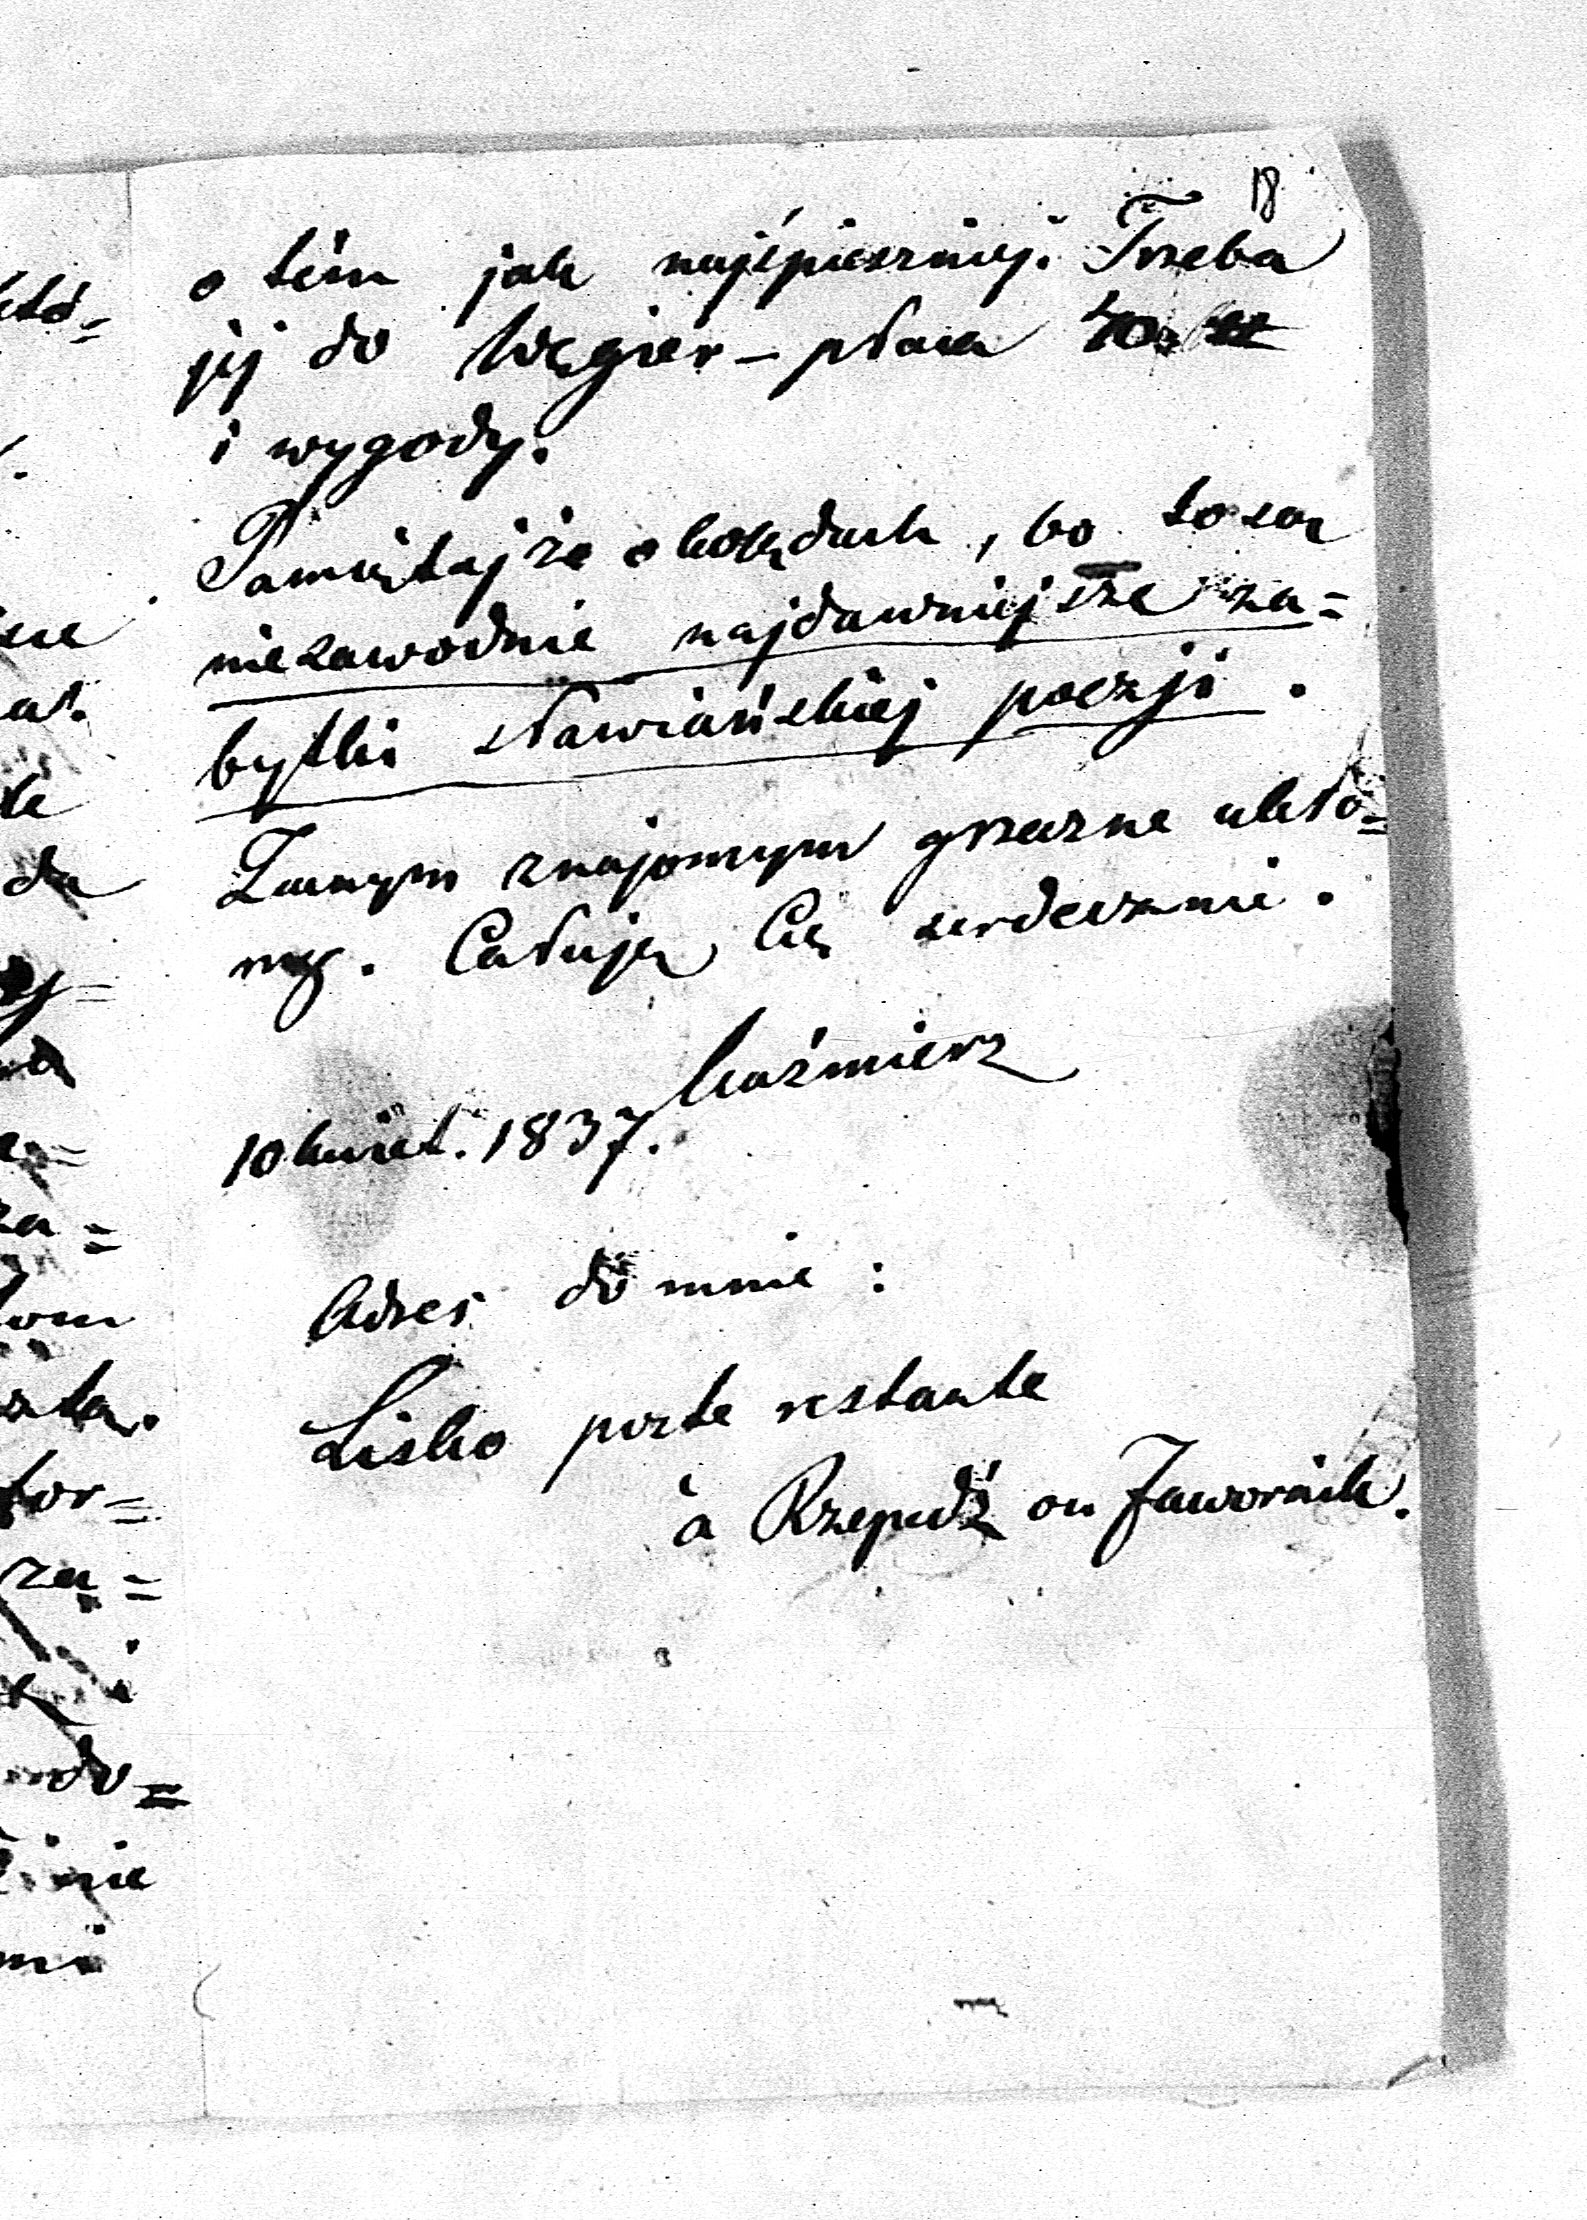 18
o tém jak najśpieszniej. Trzeba
jéj do Węgier – płaca
i wygody.
Pamiętajże o kolędach, bo to są
niezawodnie najdawniejsze za=
bytki sławiańskiej poezji.
Zacnym znajomym grzeczne ukło=
ny. Całuję Cię serdecznie.
Kaźmierz
10 kwiet. 1837.
Adres do mnie :
Lisko poste restante
à Rzepedź ou Jawornik.